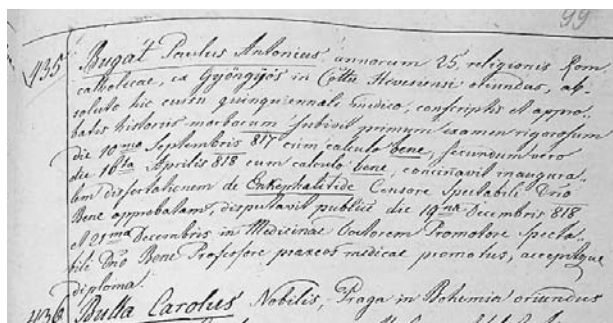 99
435 Bugát Paulus Antonius annorum 25, religionis Rom.
catholicae, ex Gyöngyös in Cottu Hevesiensi oriundus, ab-
soluto hic cursu quinquennali medico, conscriptis et appro-
batis historiis morborum subivit primum examen rigorosum
die 10ma Septembris 817 cum calculo bene, secundum vero
die 16ta Aprilis 818 cum calculo bene, concinavit inaugura-
lem dissertationem de Enkephalitide Censore Spectabili Dno
Bene approbatam, disputavit publice die 19na Decembris 818
et 21ma Decembris in Medicinae Doctorem Promotore Specta-
bili Dno Bene Professore praxeos medicae promotus, accepitque
diploma.
436 Bulla Carolus Nobilis, Praga in Bohemia oriundus